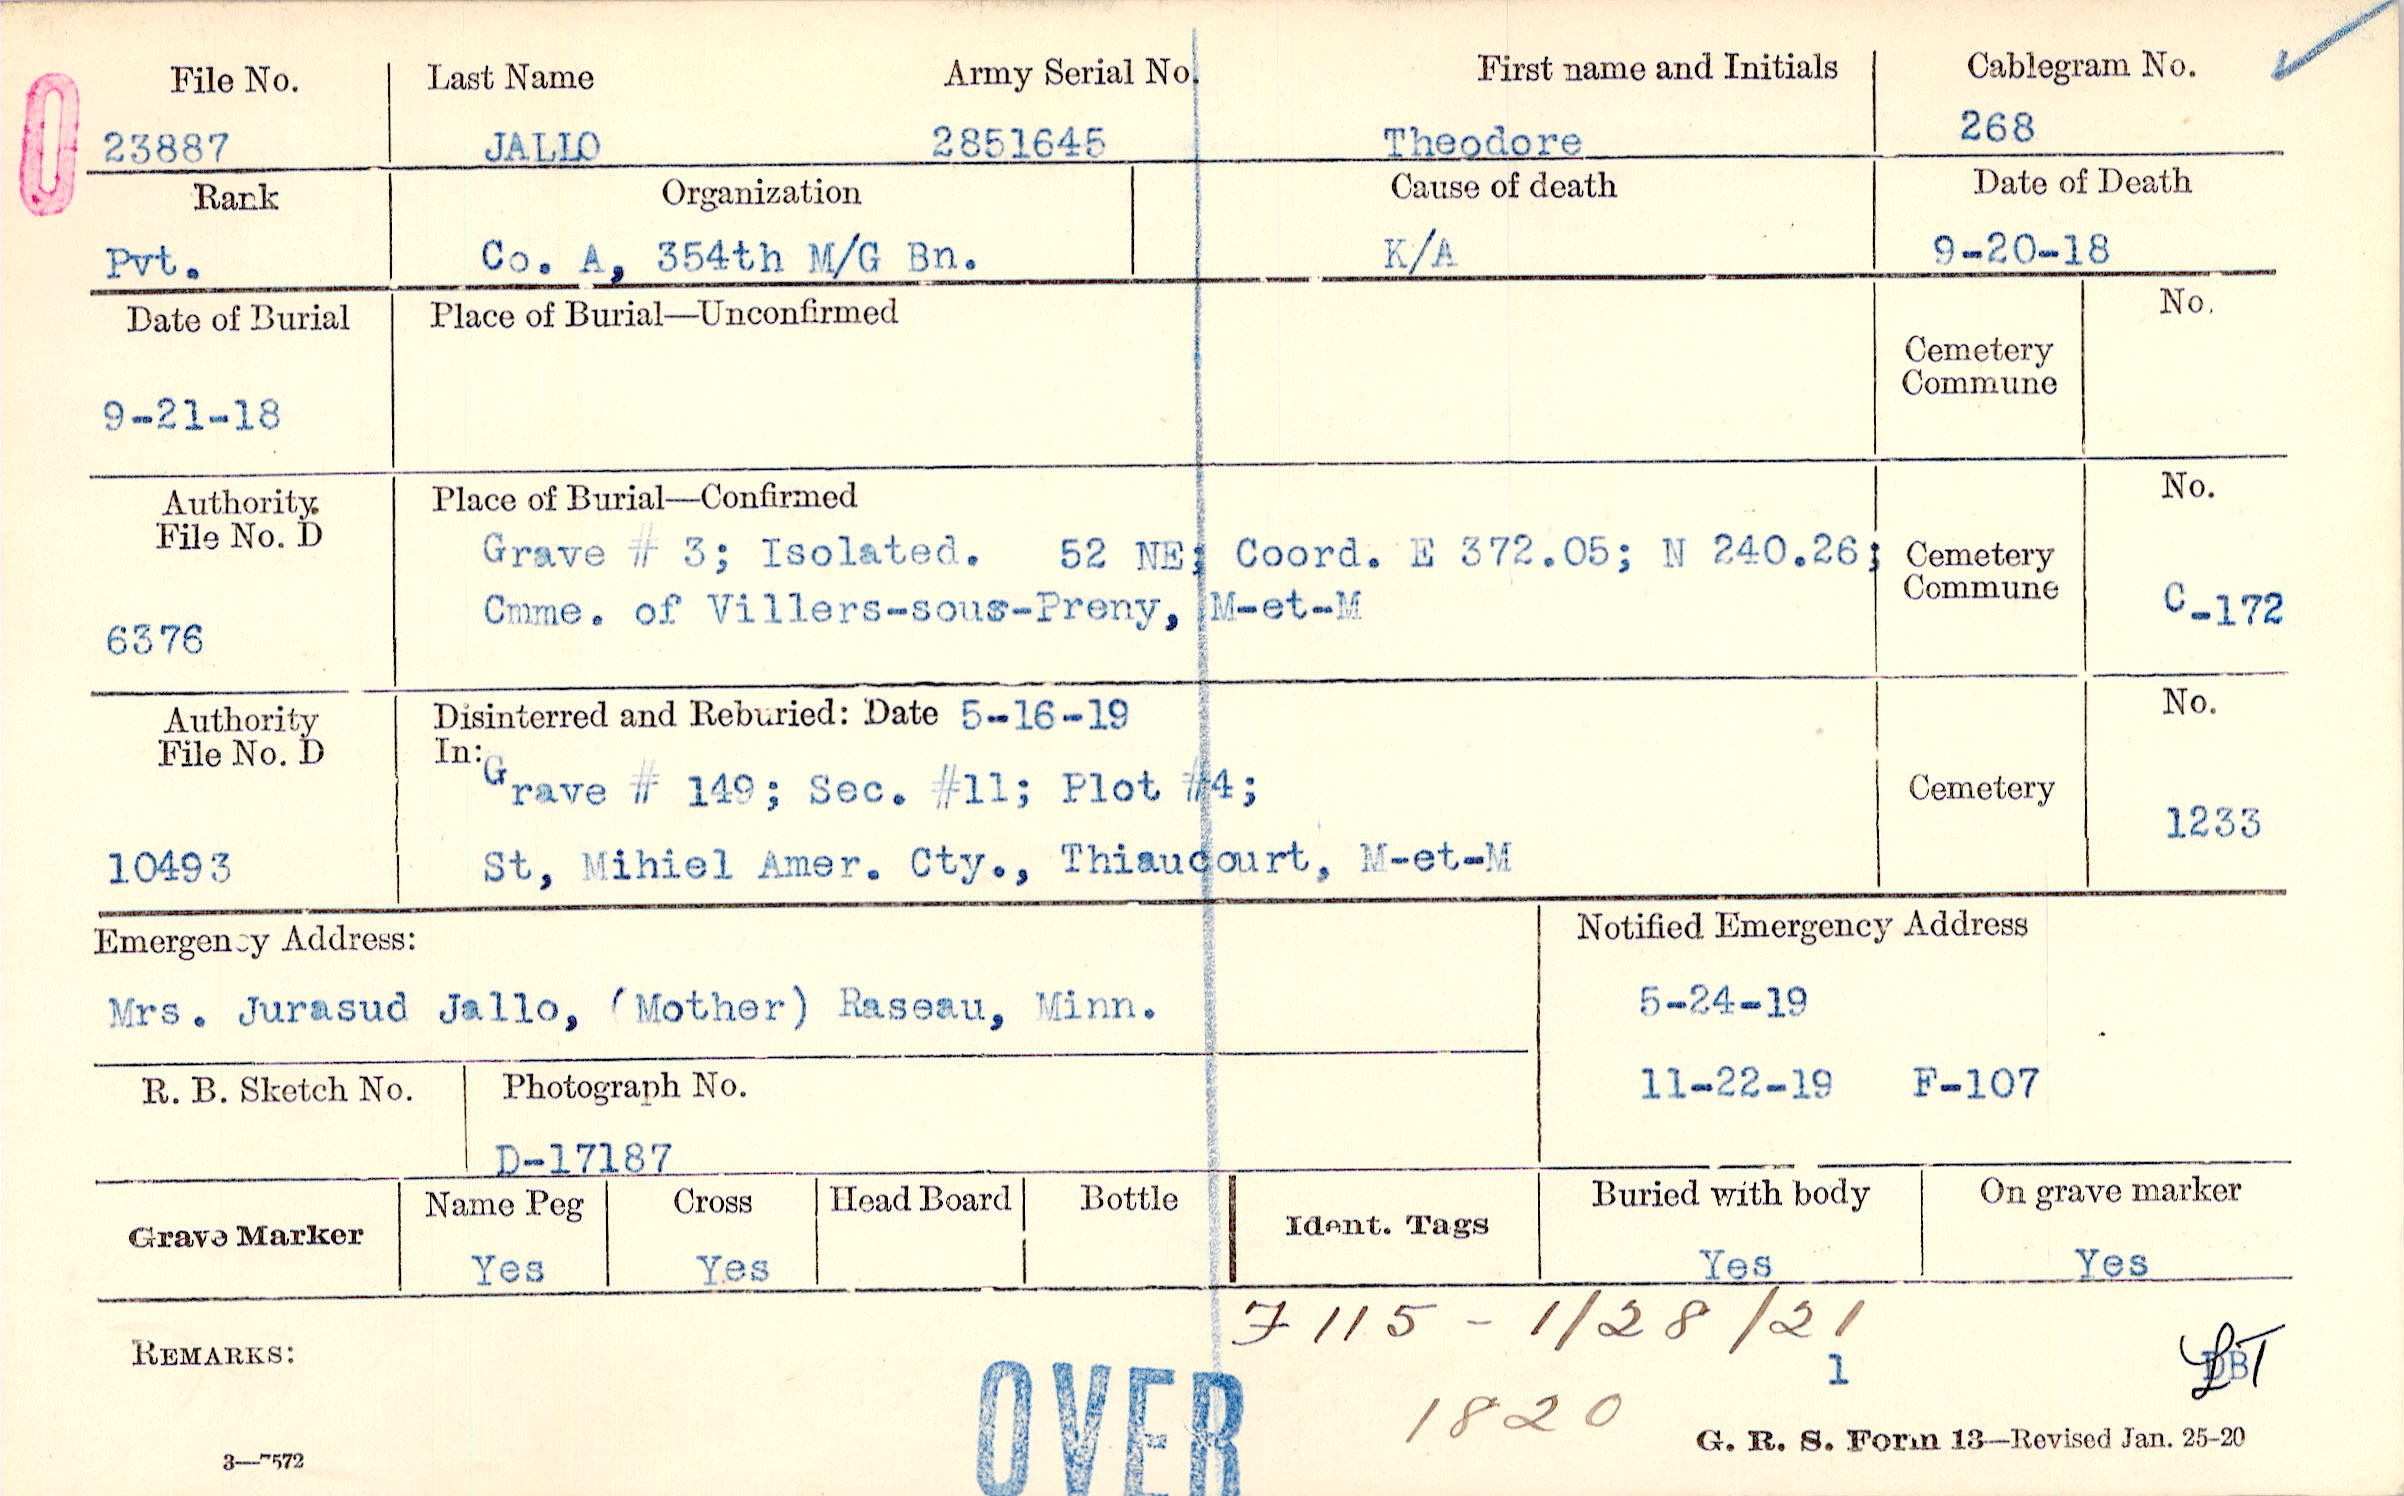 File No. Last Name Army Serial No. First name and Initials Cablegram No.
23887 JALLO 2851645 Theodore 268
Rank Organization Cause of death Date of Death
Pvt. Co. A, 354th M/G Bn. K/A 9-20-18
Date of Burial Place of Burial—Unconfirmed No.
Cemetery
Commune
9-21-18
Authority Place of Burial—Confirmed No.
File No. D
Grave # 3; Isolated. 52 NE; Coord. E 372.05; N 240.26; Cemetery
Commune
Cmme. of Villers-sous-Preny, M-et-M C-172
6376
Authority Disinterred and Reburied: Date 5-16-19 No.
File No. D In:
Grave # 149; Sec. #11; Plot #4; Cemetery
1233
10493 St, Mihiel Amer. Cty., Thiaucourt, M-et-M
Emergency Address: Notified Emergency Address
Mrs. Jurasud Jallo, (Mother) Raseau, Minn. 5-24-19
11-22-19 F-107
R. B. Sketch No. Photograph No.
D-17187
Grave Marker Name Peg Cross Head Board Bottle Ident. Tags Buried with body On grave marker
Yes Yes Yes Yes
7115 - 1/28/21
REMARKS: 1
OVER 1820
G. R. S. Form 13—Revised Jan. 25-20
3—7572